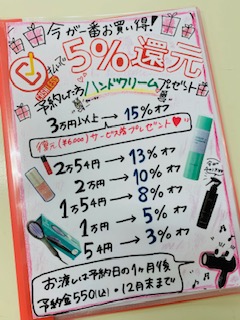 今が一番お買い得!
5%還元
予約した方ハンドクリームプレゼント
3万円以上→15%オフ
(¥6,000)サービス券プレゼント♥
2万5千円→13%オフ
2万円→10%オフ
1万5千円→8%オフ
1万円→5%オフ
5千円→3%オフ
お渡しは予約日の1ヶ月後
予約金550(込)・12月末まで!